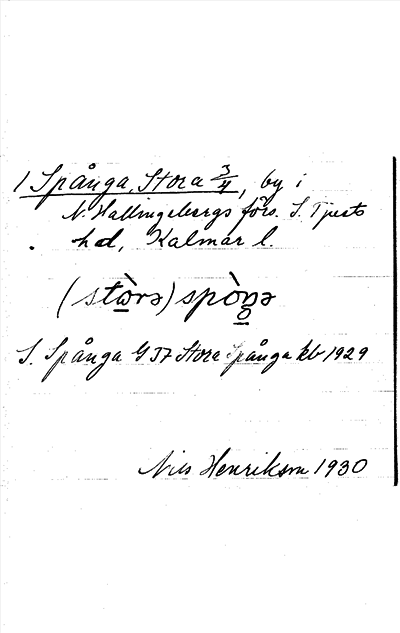 1 Spånga, Stora 3/4, by i
N. Hallingebergs förs. S. Tjusts
hd, Kalmar l.
(stὼrə) spòŋə
S. Spånga GJ7 Stora Spånga kb 1929
Nils Henrikson 1930